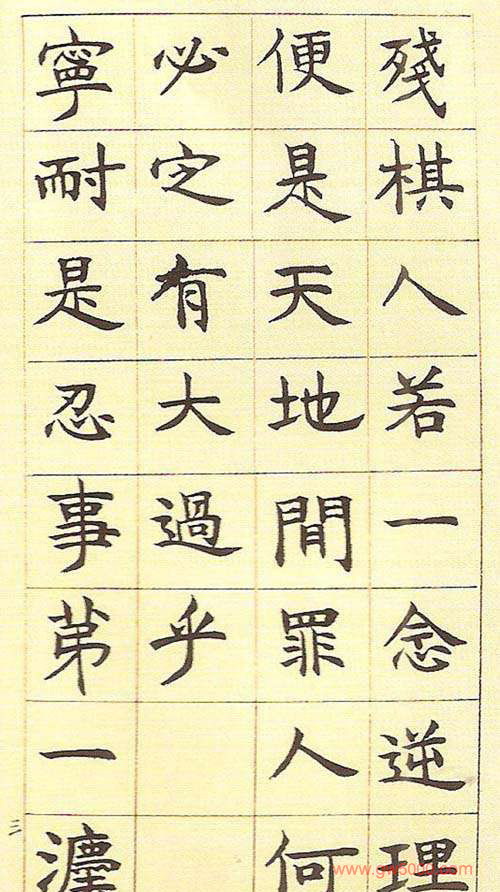 殘棋人若一念逆理
便是天地間罪人何
必定有大過乎
寧耐是忍事苐一灋
三
www.gw5000.com